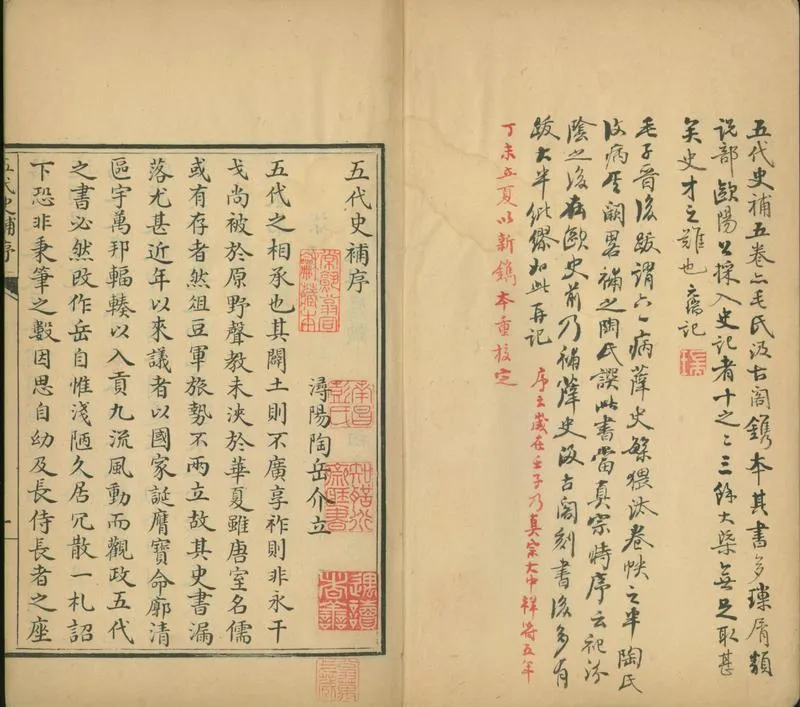 五代史補五卷亦毛氏汲古閣鐫本其書多瑣屑類
說部歐陽公採入史記者十之二三餘大槩無足取甚
矣史才之難也 記
瑞
毛子晉後跋謂六一病薛史繁猥汰卷帙之半陶氏
病其闕畧補之陶氏譔此書當真宗時序云祀汾
陰之後在歐史前乃補薛史汲古閣刻書後多有
跋大半紕繆如此再記
序云歲在壬子乃真宗大中祥符五年
丁未立夏以新鐫本重校定
五代史補序
常熟翁同龢藏本
潯陽陶岳介立
南昌彭氏
知聖道齋藏書
遇讀者善
五代之相承也其闢土則不廣享祚則非永干
戈尚被於原野聲教未浹於華夏雖唐室名儒
或有存者然俎豆軍旅勢不兩立故其史書漏
落尤甚近年以來議者以國家誕膺寶命廓清
區宇萬邦輻輳以入貢九流風動而觀政五代
之書必然改作岳自惟淺陋久居冗散一札詔
下恐非秉筆之數因思自幼及長侍長者之座
五代史補序
一